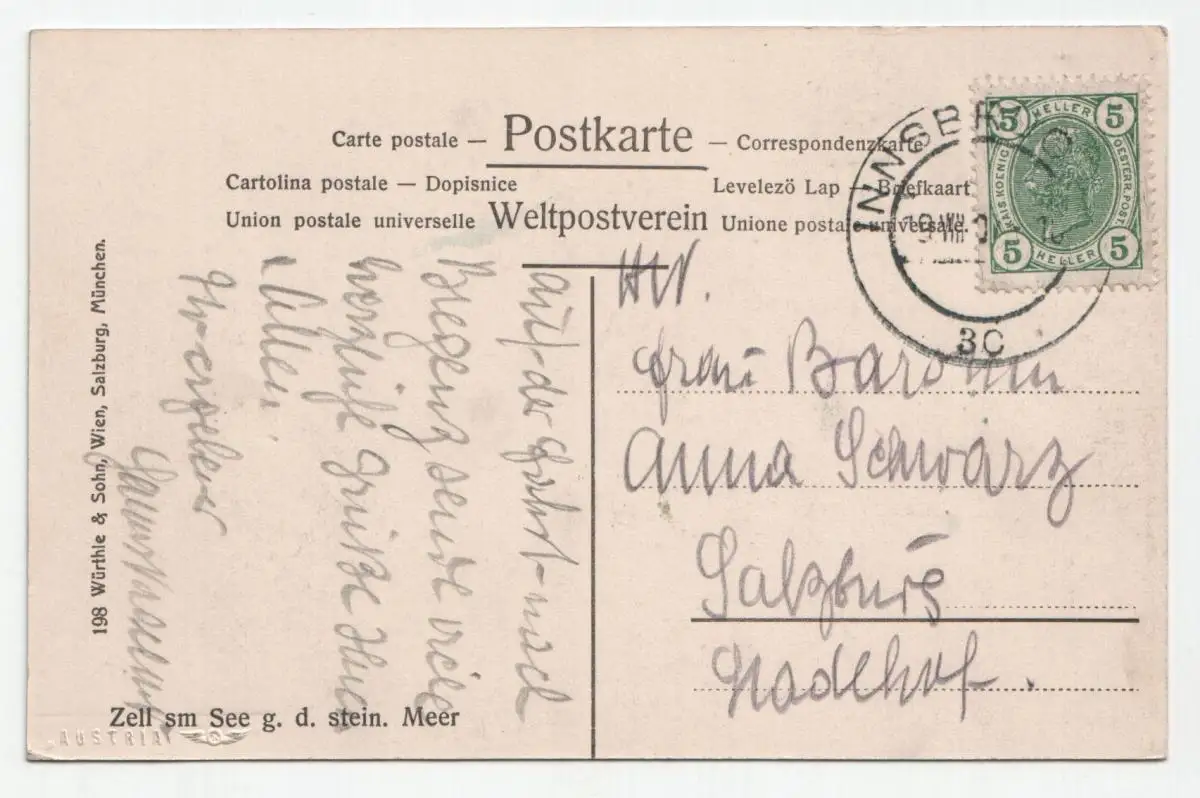 Carte postale — Postkarte — Correspondenzkarte
Cartolina postale — Dopisnice Levelezö Lap — Briefkaart
Union postale universelle Weltpostverein Unione postale universale.
5 HELLER 5
KAIS. KOENIG. OESTERR. POST.
5 HELLER 5
INNSBR
3C
198 Würthle & Sohn, Wien, Salzburg, München.
auf der Fahrt nach
Bregenz sende viele
herzliche Grüße Ihnen
Allen.
Ihr ergebener
Frau Baronin
Anna Schwarz
Salzburg
Nadlhof.
Zell sm See g. d. stein. Meer
AUSTRIA